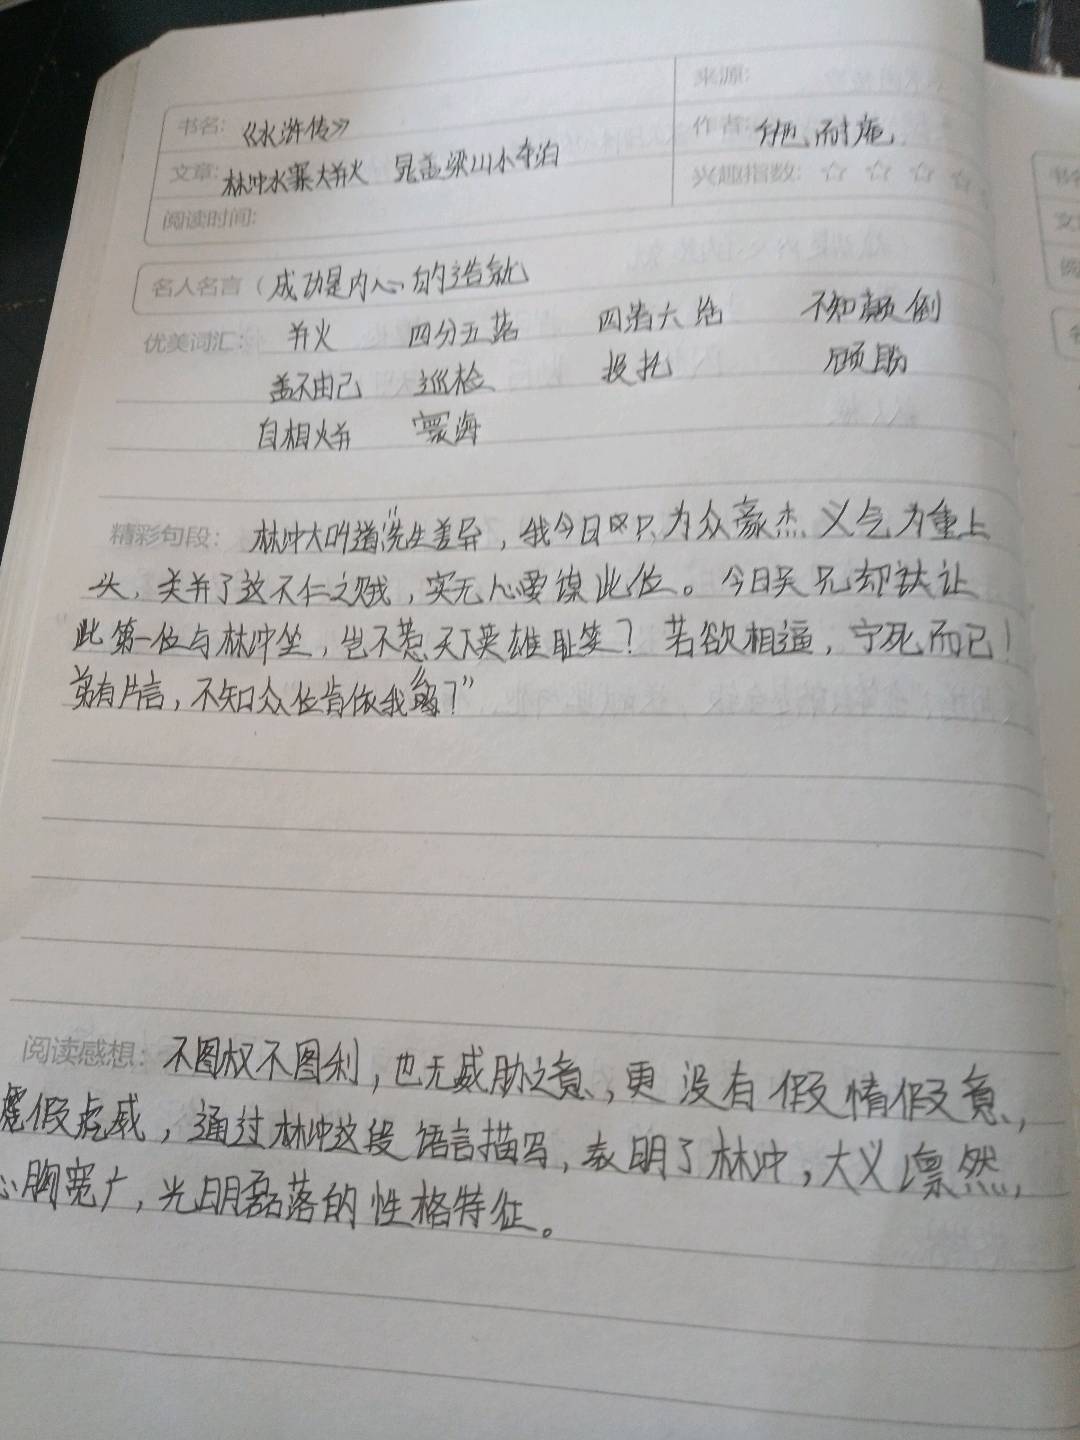 来源:
书名: 《水浒传》
作者: 施耐庵
文章: 林冲水寨大并火 晁盖梁山小夺泊
兴趣指数: ☆ ☆ ☆ ☆
阅读时间:
名人名言 ( 成功是内心的造就
优美词汇: 并火 四分五落 四浩大给 不知颠倒
盖不由己 巡检 投托 顾盼
自相火并 寰海
精彩句段: 林冲大叫道“先生差异,我今日只为众豪杰义气为重上
头,关并了这不仁之贼,实无心要谋此位。今日吴兄却让
此第一位与林冲坐,岂不惹天下英雄耻笑?若欲相逼,宁死而已!
弟有片言,不知众位肯依我么?”
阅读感想: 不图权不图利,也无威胁之意,更没有假情假意,
假虎威,通过林冲这段语言描写,表明了林冲,大义凛然,
心胸宽广,光明磊落的性格特征。